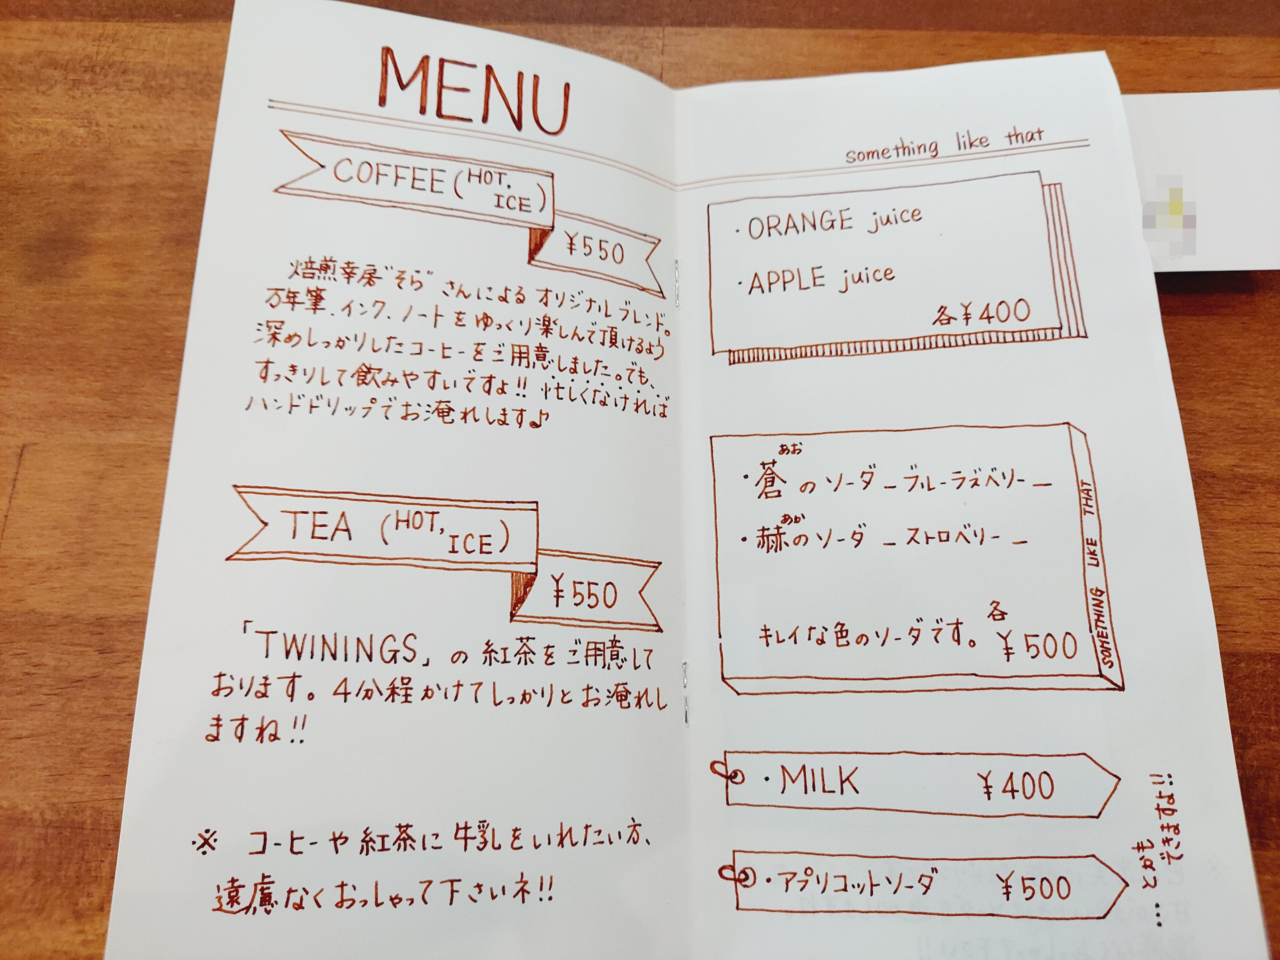 MENU
COFFEE (HOT. ICE)
¥550
焙煎幸房"そら"さんによるオリジナルブレンド。
万年筆、インク、ノートをゆっくり楽しんで頂けるよう
深めしっかりしたコーヒーをご用意しました。でも、
すっきりして飲みやすいですよ!! 忙しくなければ
ハンドドリップでお淹れします♪
TEA (HOT, ICE)
¥550
「TWININGS」の紅茶をご用意して
おります。4分程かけてしっかりとお淹れし
ますね!!
※ コーヒーや紅茶に牛乳をいれたい方、
遠慮なくおっしゃって下さいネ!!
something like that
・ORANGE juice
・APPLE juice
各¥400
あお
・蒼のソーダ _ブルーラズベリー_
あか
・赫のソーダ _ストロベリー_
キレイな色のソーダです。
各
¥500
SOMETHING LIKE THAT
・MILK ¥400
・アプリコットソーダ ¥500
…とかも
できますよ!!